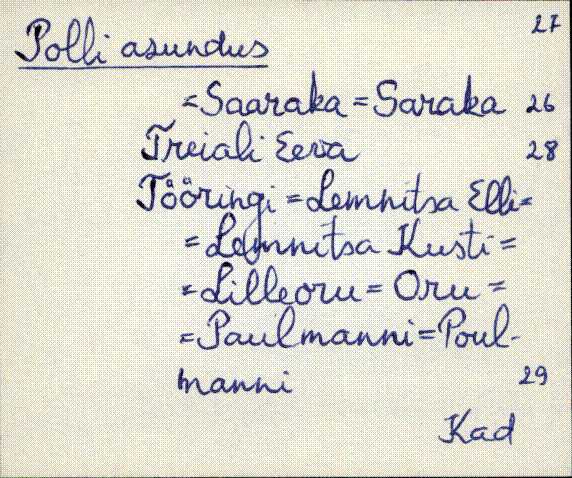 27
Polli asundus
=Saaraka=Saraka 26
Treiali Eeva 28
Tööringi=Lemnitsa Elli=
=Lemnitsa Kusti=
=Lilleoru=Oru=
=Paulmanni=Poul-
manni 29
Kad